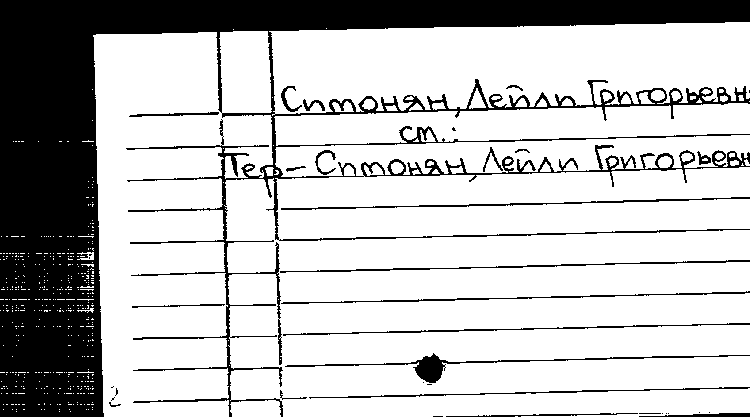 Симонян, Лейли Григорьевн
см.:
Тер-Симонян, Лейли Григорьевн
2